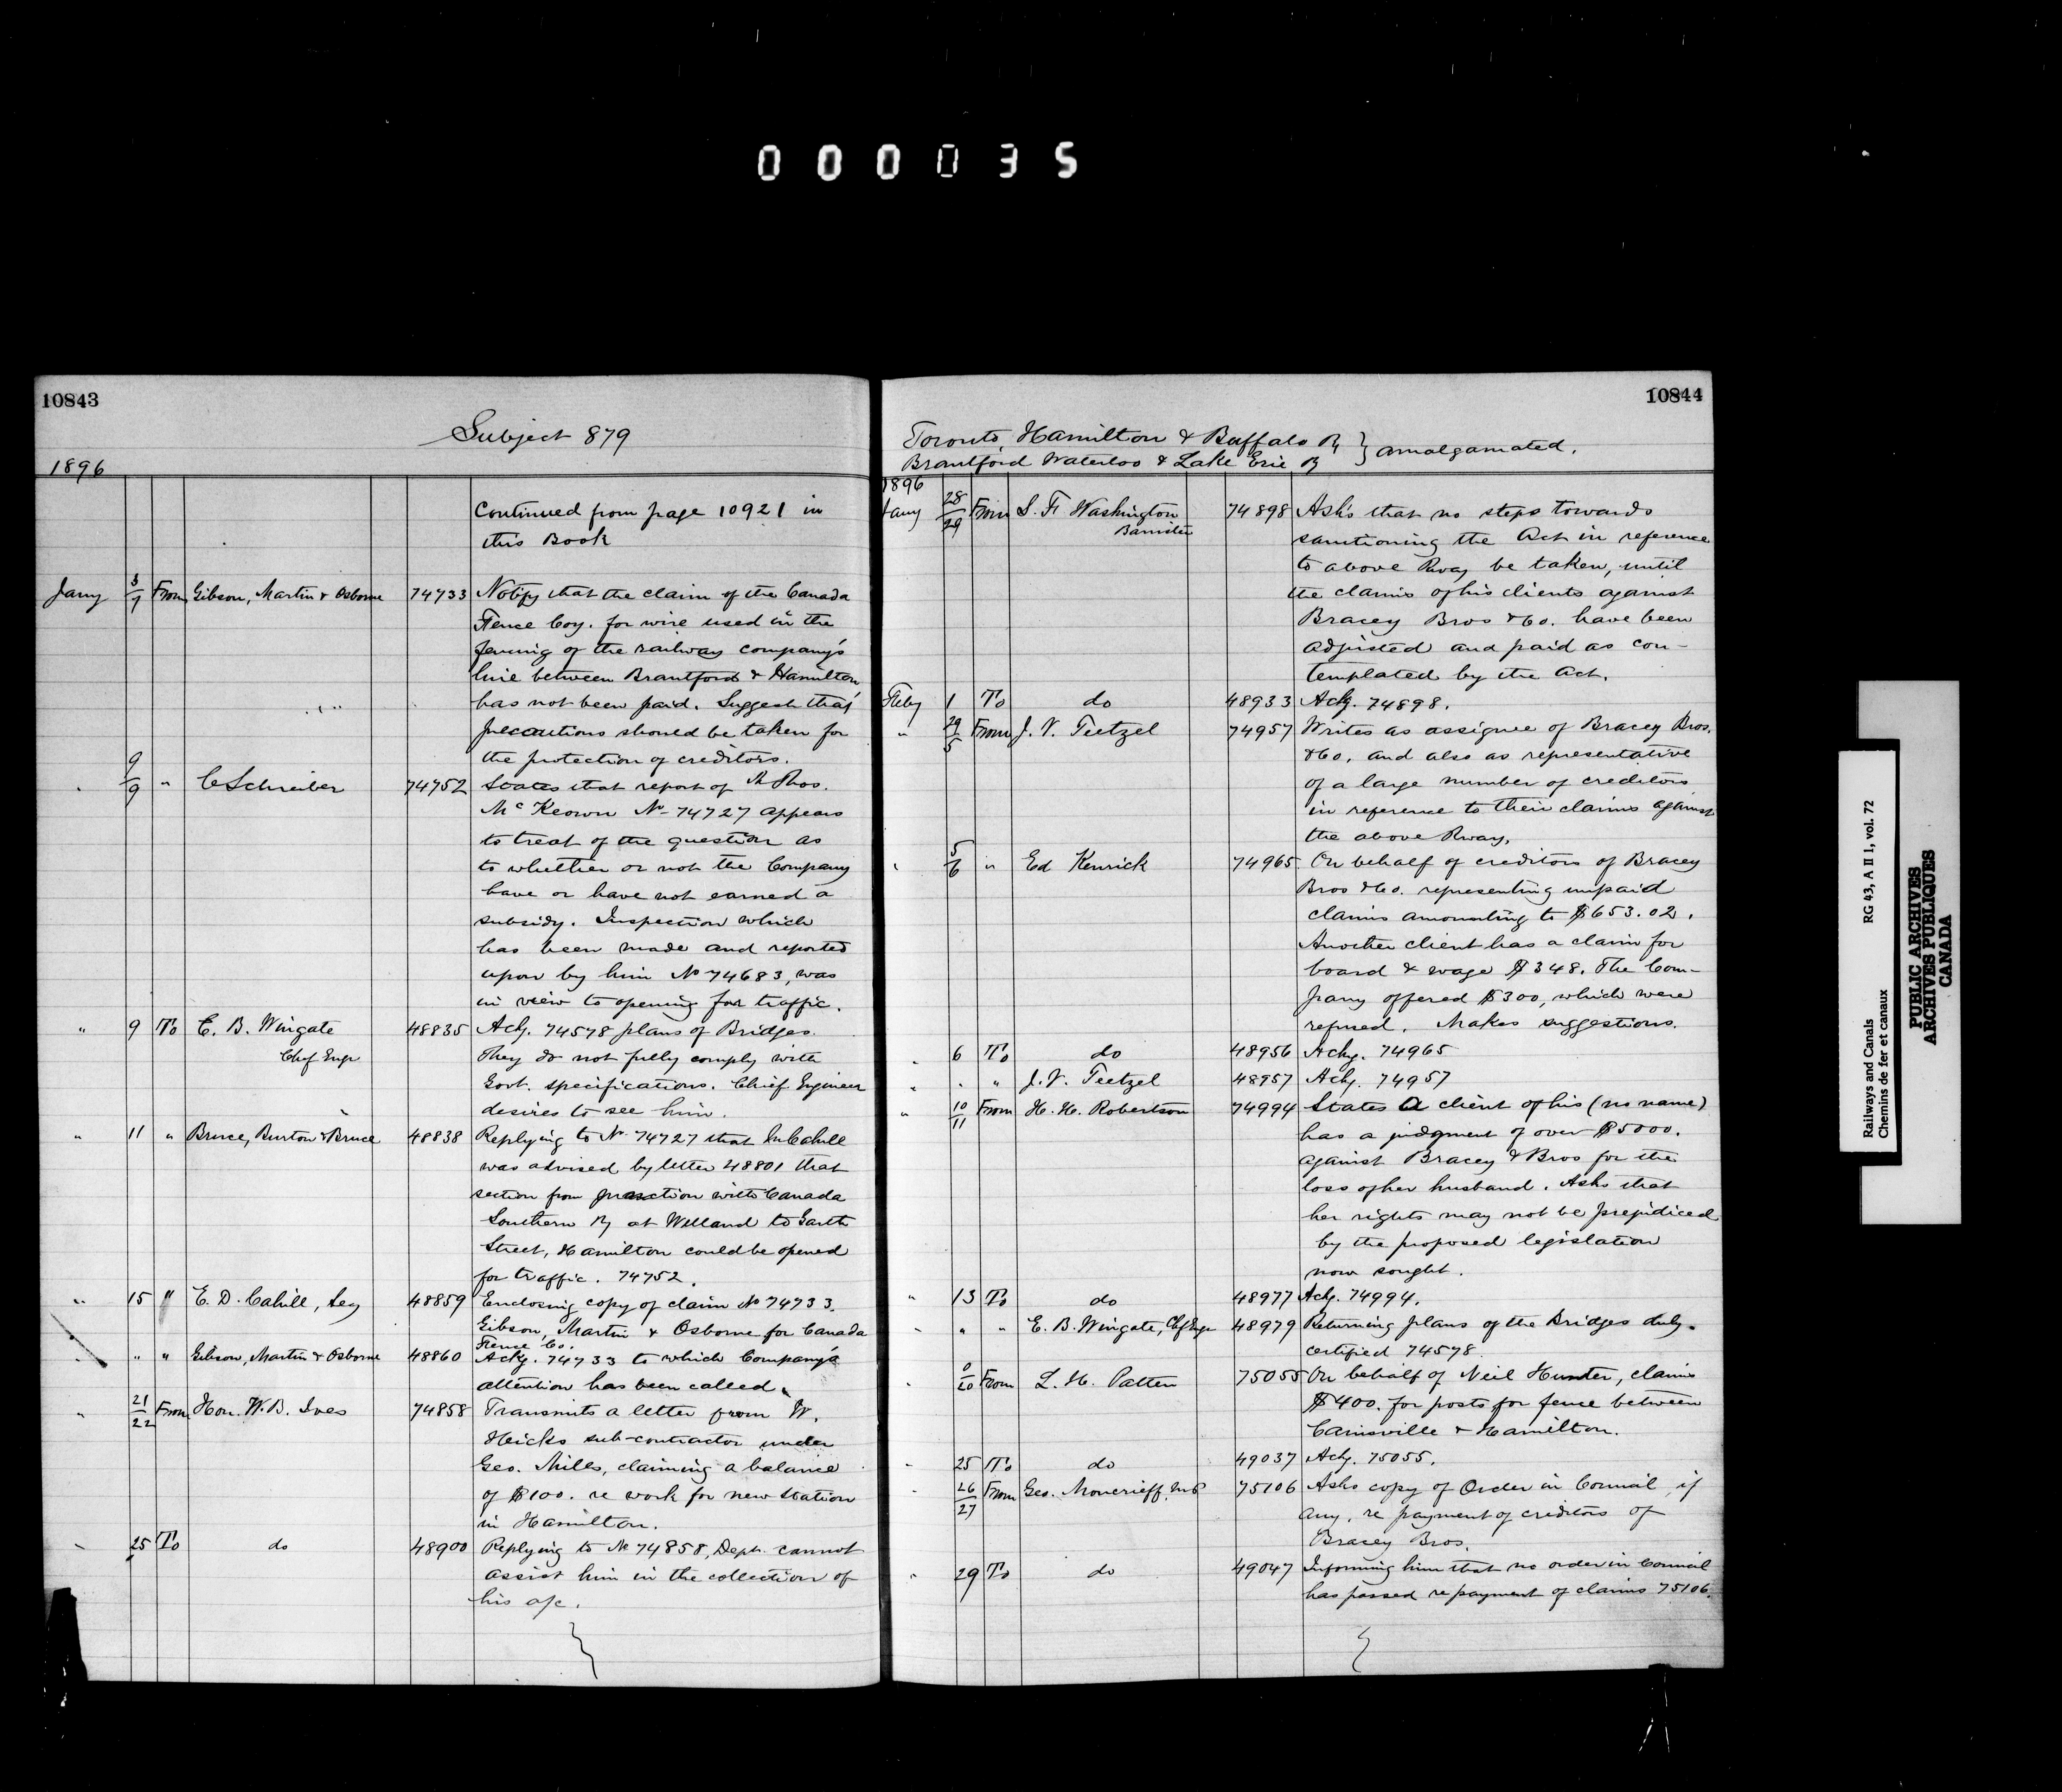 000035
10843
Subject 879
1896
Continued from page 10921 in
this Book
Jany 8/9 From Gibson, Martin & Osborne 74733 Notify that the claim of the Canada
Fence Coy. for wire used in the
fencing of the railway company's
line between Brantford & Hamilton
has not been paid. Suggest that
precautions should be taken for
the protection of creditors.
" 9/9 " C Schreiber 74752 States that report of Mr Thos.
McKeown No 74727 appears
to treat of the question as
to whether or not the Company
have or have not earned a
subsidy. Inspection which
has been made and reported
upon by him No 74683, was
in view to opening for traffic.
" 9 To E. B. Wingate 48835 Ackg. 74578 plans of Bridges.
Chf Engr They do not fully comply with
Govt. specifications. Chief Engineer
desires to see him.
" 11 " Bruce, Burton & Bruce 48838 Replying to No 74727 that Mr Cahill
was advised by letter 48801 that
section from junction with Canada
Southern Ry at Welland to Garth
Street, Hamilton could be opened
for traffic. 74752.
" 15 " E. D. Cahill, Secy 48859 Enclosing copy of claim No 74733.
Gibson, Martin & Osborne for Canada
Fence Co.
" " " Gibson, Martin & Osborne 48860 Ackg. 74733 to which Company's
attention has been called.
" 21/22 From Hon. W. B. Ives 74858 Transmits a letter from W.
Hicks sub-contractor under
Geo. Mills, claiming a balance
of $100. re work for new station
in Hamilton.
" 25 To do 48900 Replying to No 74858, Dept. cannot
assist him in the collection of
his a/c.
10844
Toronto, Hamilton & Buffalo Ry } Amalgamated.
Brantford Waterloo & Lake Erie Ry
1896
Jany 28/29 From S. F. Washington 74898 Asks that no steps towards
Barrister sanctioning the Act in reference
to above Rway be taken, until
the claims of his clients against
Bracey Bros & Co. have been
adjusted and paid as con-
templated by the Act.
Feby 1 To do 48933 Ackg. 74898.
" 29/5 From J. V. Teetzel 74957 Writes as assignee of Bracey Bros.
& Co. and also as representative
of a large number of creditors
in reference to their claims against
the above Rway.
" 5/6 " Ed Kenrick 74965 On behalf of creditors of Bracey
Bros & Co. representing unpaid
claims amounting to $653.02.
Another client has a claim for
board & wage $348. The Com-
pany offered $300, which were
refused. Makes suggestions.
" 6 To do 48956 Ackg. 74965
" " " J. V. Teetzel 48957 Ackg. 74957
" 10/11 From H. H. Robertson 74994 States a client of his (no name)
has a judgment of over $5000.
against Bracey & Bros for the
loss of her husband. Asks that
her rights may not be prejudiced
by the proposed legislation
now sought.
" 13 To do 48977 Ackg. 74994.
" " " E. B. Wingate, Chf Engr 48979 Returning plans of the Bridges duly
certified 74578.
" 0/20 From L. H. Patten 75055 On behalf of Neil Hunter, claims
$400. for posts for fence between
Cainsville & Hamilton.
" 25 To do 49037 Ackg. 75055.
" 26/27 From Geo. Moncrieff, M.P. 75106 Asks copy of Order in Council, if
any, re payment of creditors of
Bracey Bros.
" 29 To do 49047 Informing him that no order in Council
has passed re payment of claims 75106.
Railways and Canals RG 43, A II 1, vol. 72
Chemins de fer et canaux
PUBLIC ARCHIVES
ARCHIVES PUBLIQUES
CANADA